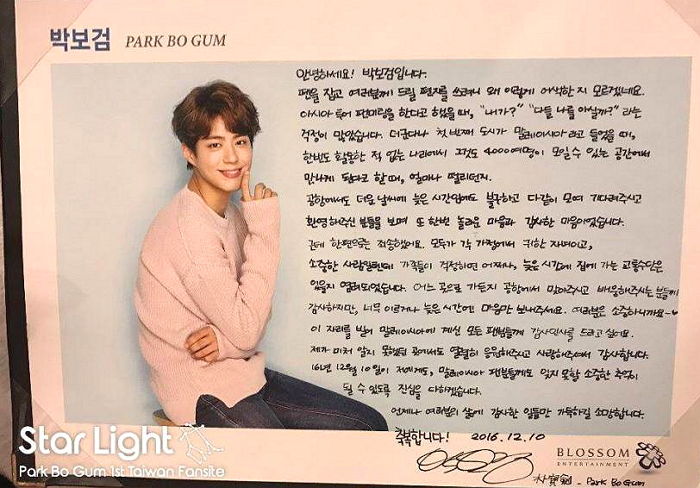 박보검 PARK BO GUM
안녕하세요! 박보검입니다.
펜을 잡고 여러분께 드릴 편지를 쓰려니 왜 이렇게 어색한 지 모르겠네요.
아시아 투어 팬미팅을 한다고 했을 때, "내가?" "다들 나를 아실까?" 라는
걱정이 많았습니다. 더군다나 첫 번째 도시가 말레이시아라고 들었을 때,
한번도 활동한 적 없는 나라에서 그것도 4000여명이 모일 수 있는 공간에서
만나게 된다고 할 때, 얼마나 떨리던지.
공항에서도 더운 날씨에 늦은 시간임에도 불구하고 다같이 모여 기다려주시고
환영해주신 분들을 보며 또 한번 놀라운 마음과 감사한 마음이었습니다.
근데 한편으로는 죄송했어요. 모두가 각 가정에서 귀한 자녀이고,
소중한 사람일텐데 가족들이 걱정하면 어쩌나, 늦은 시간에 집에 가는 교통수단은
있을지 염려되었답니다. 어느 곳으로 가든지 공항에서 맞아주시고 배웅해주시는 분들께
감사하지만, 너무 이르거나 늦은 시간엔 마음만 보내주세요. 여러분은 소중하니까요~♥
이 자리를 빌어 말레이시아에 계신 모든 팬분들께 감사인사를 드리고 싶어요.
제가 미처 알지 못했던 곳에서도 열렬히 응원해주시고 사랑해주셔서 감사합니다.
16년 12월 10일이 저에게도, 말레이시아 팬분들께도 잊지 못할 소중한 추억이
될 수 있도록 진심을 다하겠습니다.
언제나 여러분의 삶에 감사한 일들만 가득하길 소망합니다.
축복합니다! 2016.12.10
朴寶劍 - Park Bo Gum
BLOSSOM
ENTERTAINMENT
Star Light
Park Bo Gum 1st Taiwan Fansite